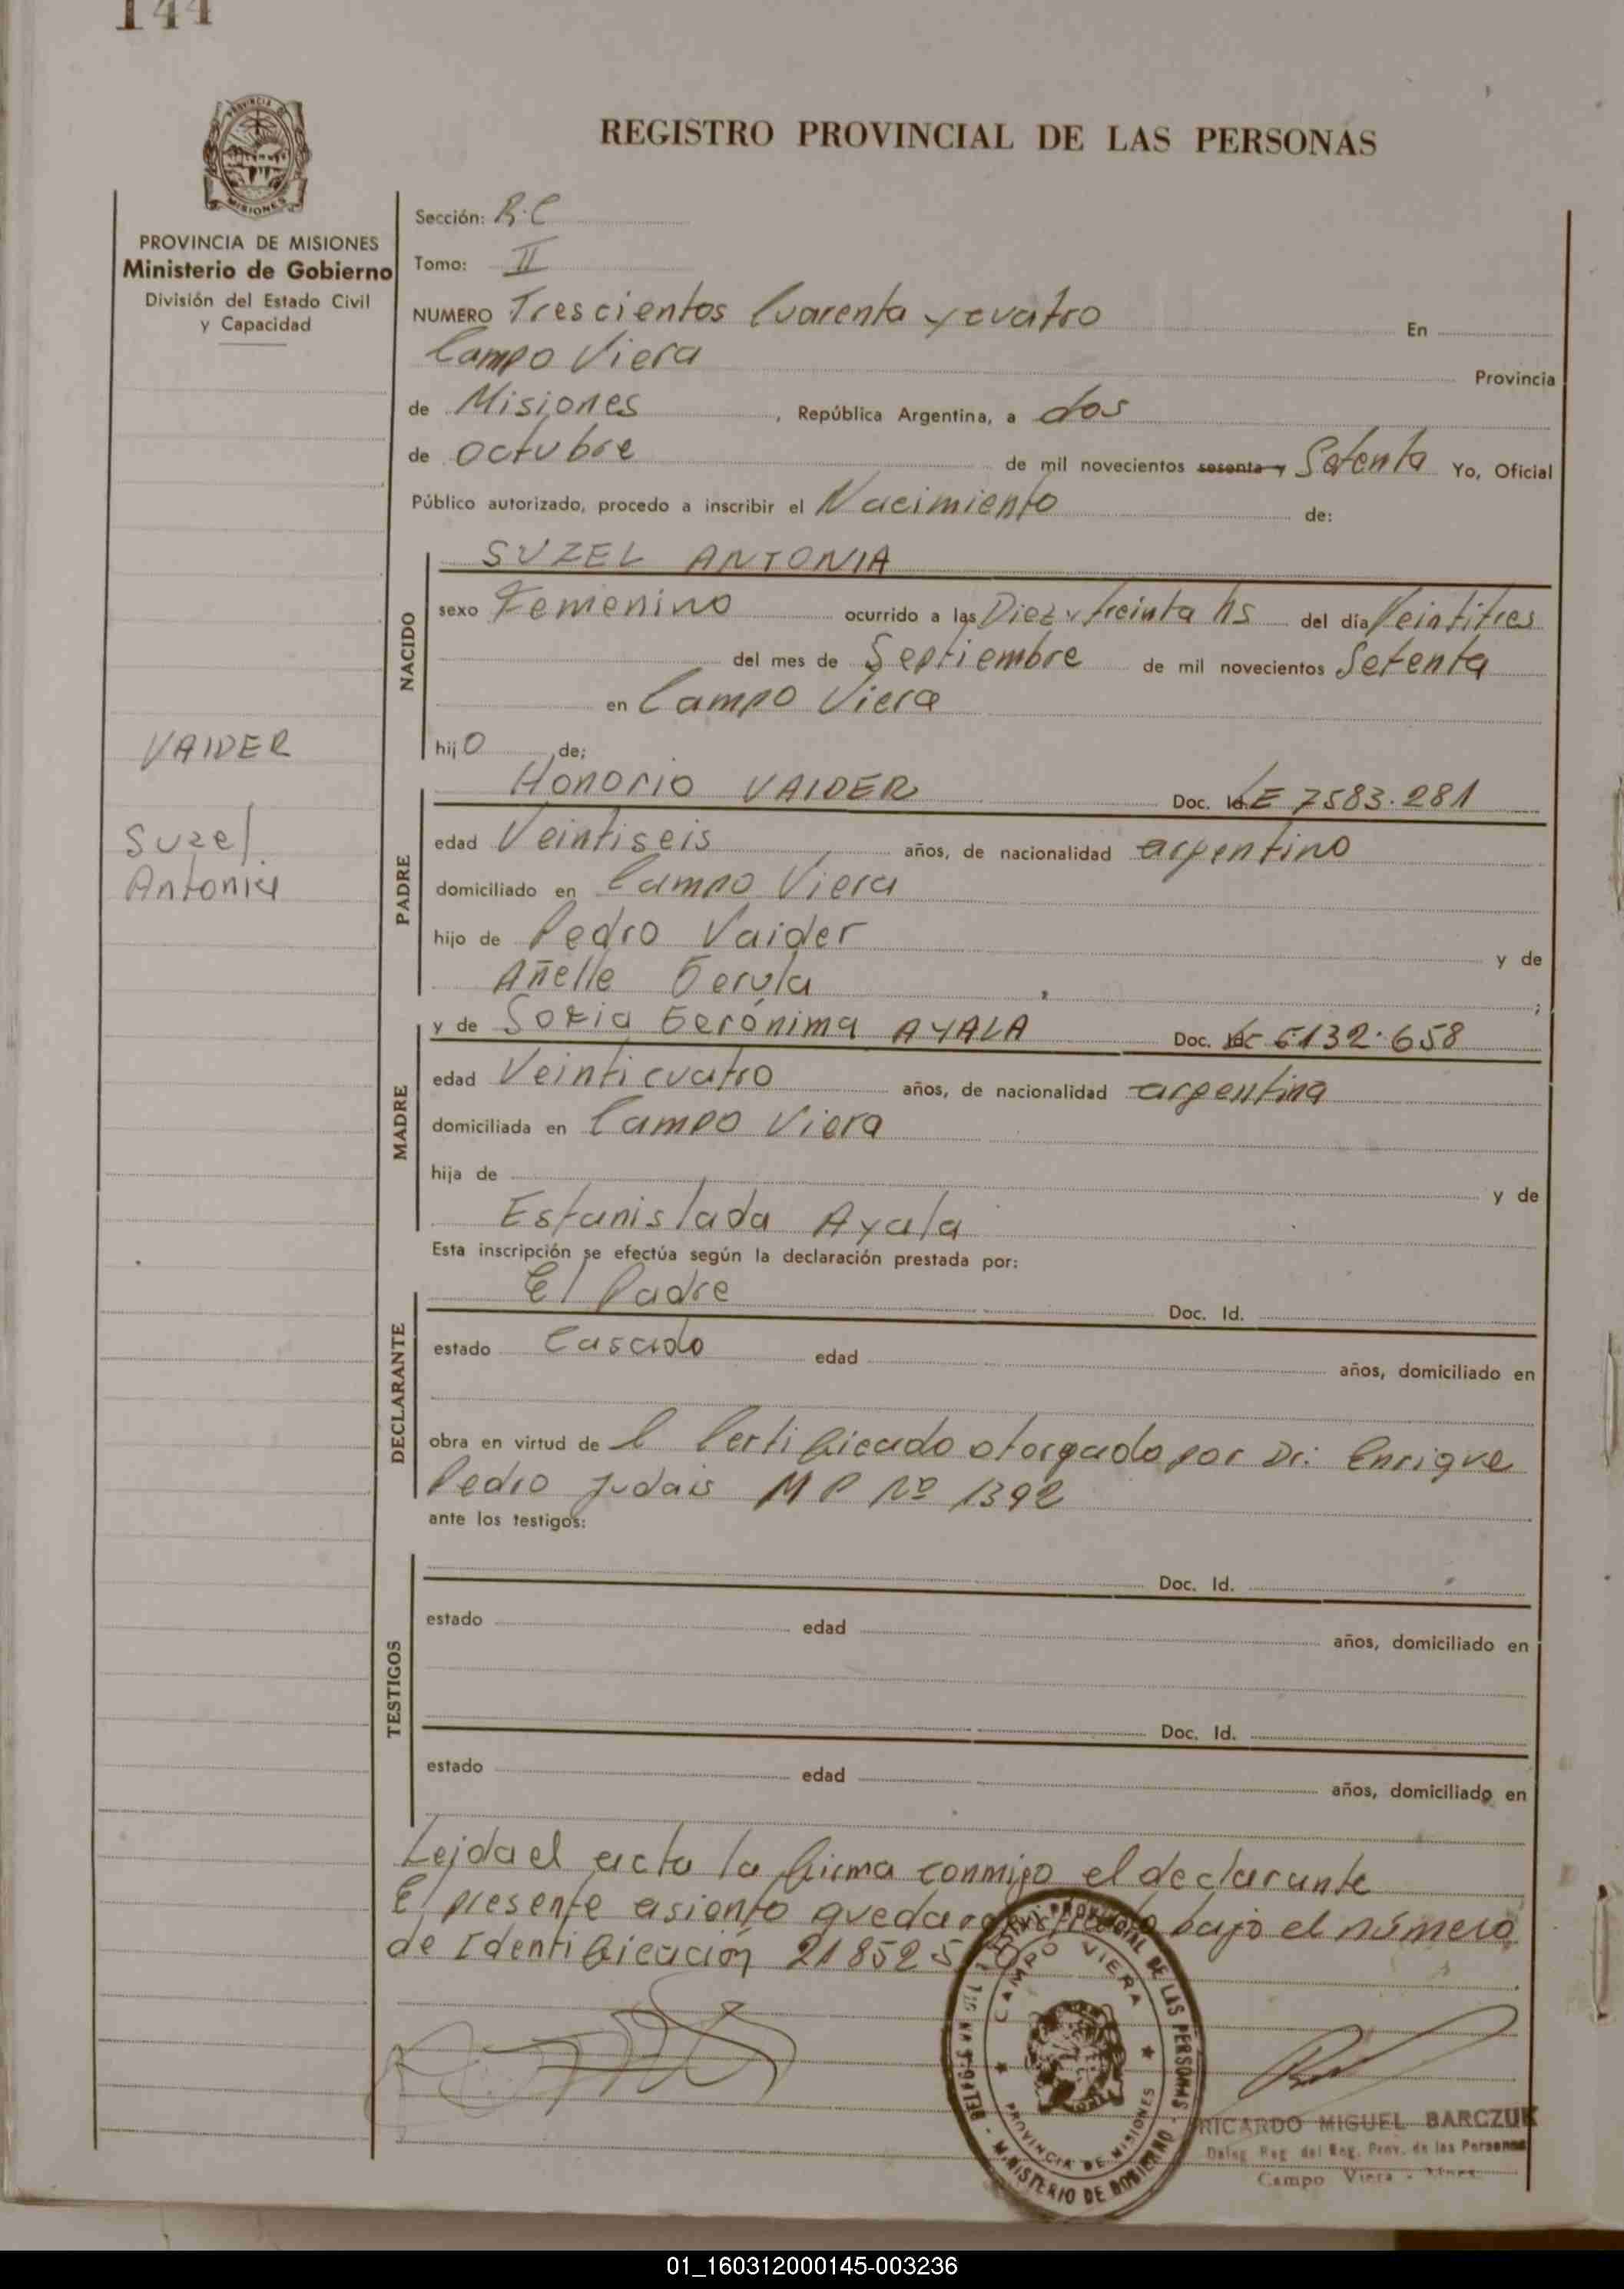 144
REGISTRO PROVINCIAL DE LAS PERSONAS
MISIONES
PROVINCIA DE MISIONES
Ministerio de Gobierno
División del Estado Civil
y Capacidad
Sección: R.C
Tomo: II
NUMERO Trescientos Cuarenta y cuatro En
Campo Viera Provincia
de Misiones, República Argentina, a dos
de octubre de mil novecientos sesenta y Setenta Yo, Oficial
Público autorizado, procedo a inscribir el Nacimiento de:
NACIDO
SUZEL ANTONIA
sexo Femenino ocurrido a las Diez y treinta hs del día Veintitres
del mes de Septiembre de mil novecientos Setenta
en Campo Viera
hijo de:
VAIDER
Suzel
Antonia
PADRE
Honorio VAIDER Doc. Id. LE 7583.281
edad Veintiseis años, de nacionalidad argentino
domiciliado en Campo Viera
hijo de Pedro Vaider y de
Añelle Gerula ;
MADRE
y de Sofia Gerónima AYALA Doc. LC 6132.658
edad Veinticuatro años, de nacionalidad argentina
domiciliada en Campo Viera
hija de y de
Estanislada Ayala
Esta inscripción se efectúa según la declaración prestada por:
DECLARANTE
El Padre Doc. Id.
estado Casado edad años, domiciliado en
obra en virtud de l Certificado otorgado por Dr. Enrique
Pedro Judais M P Nº 1392
ante los testigos:
TESTIGOS
Doc. Id.
estado edad años, domiciliado en
Doc. Id.
estado edad años, domiciliado en
Leida el acta la firma conmigo el declarante
El presente asiento queda registrado bajo el número
de Identificación 218525
REGISTRO PROVINCIAL DE LAS PERSONAS
CAMPO VIERA
PROVINCIA DE MISIONES
MINISTERIO DE GOBIERNO
RICARDO MIGUEL BARCZUK
Deleg. Reg. del Reg. Prov. de las Personas
Campo Viera - Mnes.
01_160312000145-003236